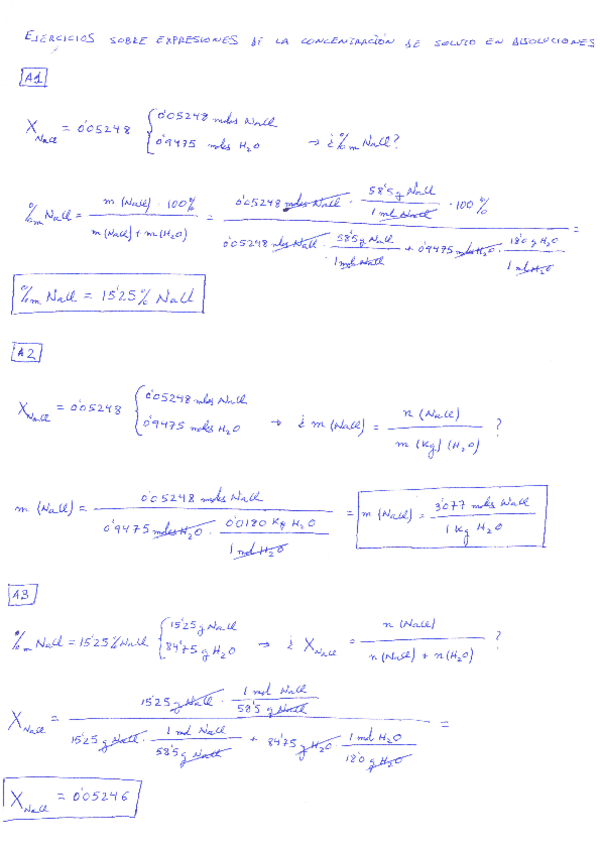 EJERCICIOS SOBRE EXPRESIONES DE LA CONCENTRACIÓN DE SOLUTO EN DISOLUCIONES
A1
X NaCl = 0'05248 { 0'05248 moles NaCl
0'9475 moles H2O → ¿ %m NaCl?
%m NaCl = m (NaCl) · 100% / m (NaCl) + m (H2O) = 0'05248 moles NaCl · 58'5 g NaCl / 1 mol NaCl · 100 % / 0'05248 moles NaCl · 58'5 g NaCl / 1 mol NaCl + 0'9475 moles H2O · 18'0 g H2O / 1 mol H2O =
%m NaCl = 15'25 % NaCl
A2
X NaCl = 0'05248 { 0'05248 moles NaCl
0'9475 moles H2O → ¿ m (NaCl) = n (NaCl) / m (Kg) (H2O) ?
m (NaCl) = 0'05248 moles NaCl / 0'9475 moles H2O · 0'0180 Kg H2O / 1 mol H2O = m (NaCl) = 3'077 moles NaCl / 1 Kg H2O
A3
%m NaCl = 15'25 % NaCl { 15'25 g NaCl
84'75 g H2O → ¿ X NaCl = n (NaCl) / n (NaCl) + n (H2O) ?
X NaCl = 15'25 g NaCl · 1 mol NaCl / 58'5 g NaCl / 15'25 g NaCl · 1 mol NaCl / 58'5 g NaCl + 84'75 g H2O · 1 mol H2O / 18'0 g H2O =
X NaCl = 0'05246